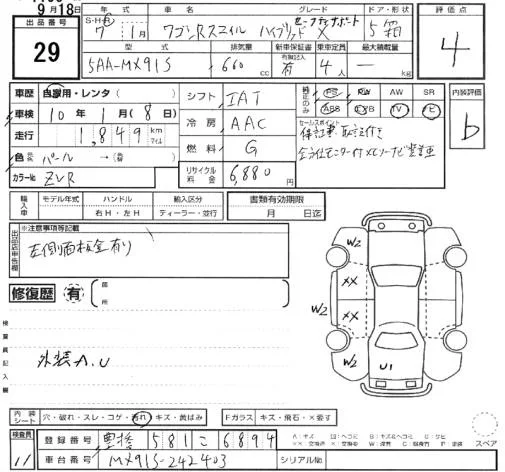 9月18日
出品番号 29
年式 車名 グレード ドア・形状 評価点
S・H・R 7年 1月 ワゴンRスマイル ハイブリッド X セーフティサポート 5 箱 4
型式 排気量 新車保証書 乗車定員 最大積載量
5AA-MX91S 660 cc 有 4人 kg
車歴 自家用・レンタ シフト IAT PS PW AW SR 内装評価
車検 10年 1月(8日) 冷房 AAC ABS エアB TV ナビ b
走行 1,849 km マイル 燃料 G セールスポイント
保証書、取説付き
色 パール →(替) リサイクル料金 6,880円
全方位モニター付メモリーナビ
カラー№ ZVR
輸入車 モデル年式 ハンドル 輸入区分 書類有効期限
右H・左H ディーラー・並行 月 日迄
出品店申告欄 ※注意事項等記載
左側面板金有り
W2
XX
W2 XX W2
修復歴 有 部所
W2
U1
検査員記入欄
外装A.U
内装シート 穴・破れ・スレ・コゲ・汚れ・キズ・黄ばみ Fガラス キズ・飛石・×要す
スペア
検査員 11 登録番号 豊橋 581 こ 6894
車台番号 MX91S-242403 シリアル№